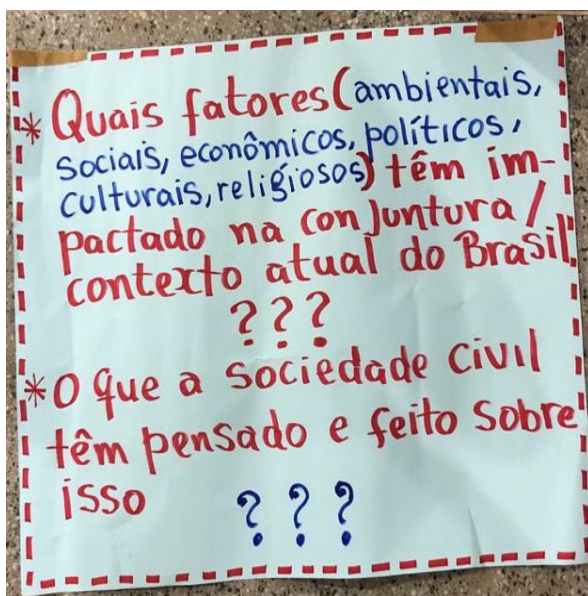 * Quais fatores (ambientais,
sociais, econômicos, políticos,
culturais, religiosos) têm im-
pactado na conjuntura/
contexto atual do Brasil
???
* O que a sociedade civil
têm pensado e feito sobre
isso ???